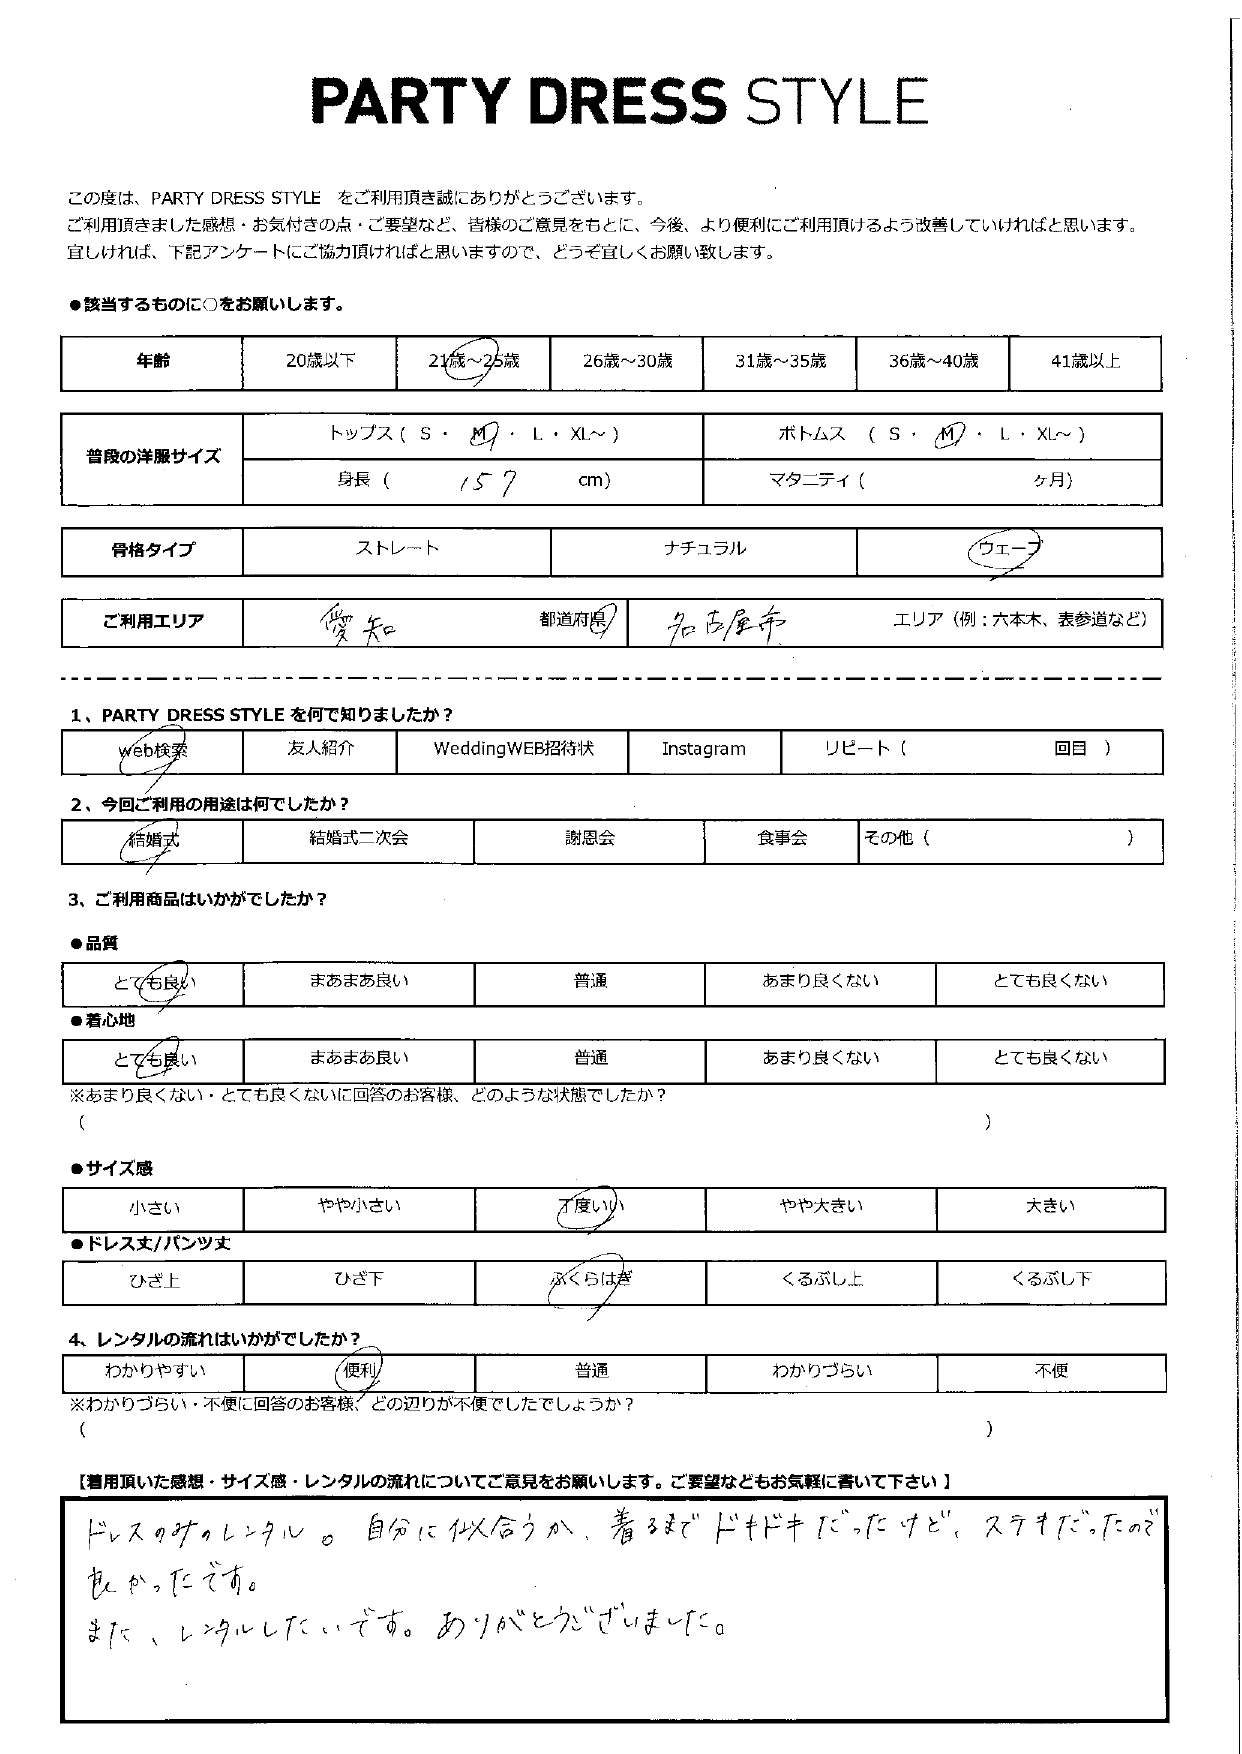 PARTY DRESS STYLE
この度は、PARTY DRESS STYLE をご利用頂き誠にありがとうございます。
ご利用頂きました感想・お気付きの点・ご要望など、皆様のご意見をもとに、今後、より便利にご利用頂けるよう改善していければと思います。
宜しければ、下記アンケートにご協力頂ければと思いますので、どうぞ宜しくお願い致します。
●該当するものに○をお願いします。
年齢 20歳以下 21歳～25歳 26歳～30歳 31歳～35歳 36歳～40歳 41歳以上
普段の洋服サイズ
トップス ( S ・ M ・ L ・ XL～ ) ボトムス ( S ・ M ・ L ・ XL～ )
身長 ( 157 cm) マタニティ ( ヶ月)
骨格タイプ ストレート ナチュラル ウェーブ
ご利用エリア 愛知 都道府県 名古屋市 エリア（例：六本木、表参道など）
1、PARTY DRESS STYLE を何で知りましたか？
web検索 友人紹介 WeddingWEB招待状 Instagram リピート ( 回目 )
2、今回ご利用の用途は何でしたか？
結婚式 結婚式二次会 謝恩会 食事会 その他 ( )
3、ご利用商品はいかがでしたか？
●品質
とても良い まあまあ良い 普通 あまり良くない とても良くない
●着心地
とても良い まあまあ良い 普通 あまり良くない とても良くない
※あまり良くない・とても良くないに回答のお客様、どのような状態でしたか？
( )
●サイズ感
小さい やや小さい 丁度いい やや大きい 大きい
●ドレス丈/パンツ丈
ひざ上 ひざ下 ふくらはぎ くるぶし上 くるぶし下
4、レンタルの流れはいかがでしたか？
わかりやすい 便利 普通 わかりづらい 不便
※わかりづらい・不便に回答のお客様、どの辺りが不便でしたでしょうか？
( )
【着用頂いた感想・サイズ感・レンタルの流れについてご意見をお願いします。ご要望などもお気軽に書いて下さい 】
ドレスのみのレンタル。自分に似合うか、着るまでドキドキだったけど、ステキだったので
良かったです。
また、レンタルしたいです。ありがとうございました。